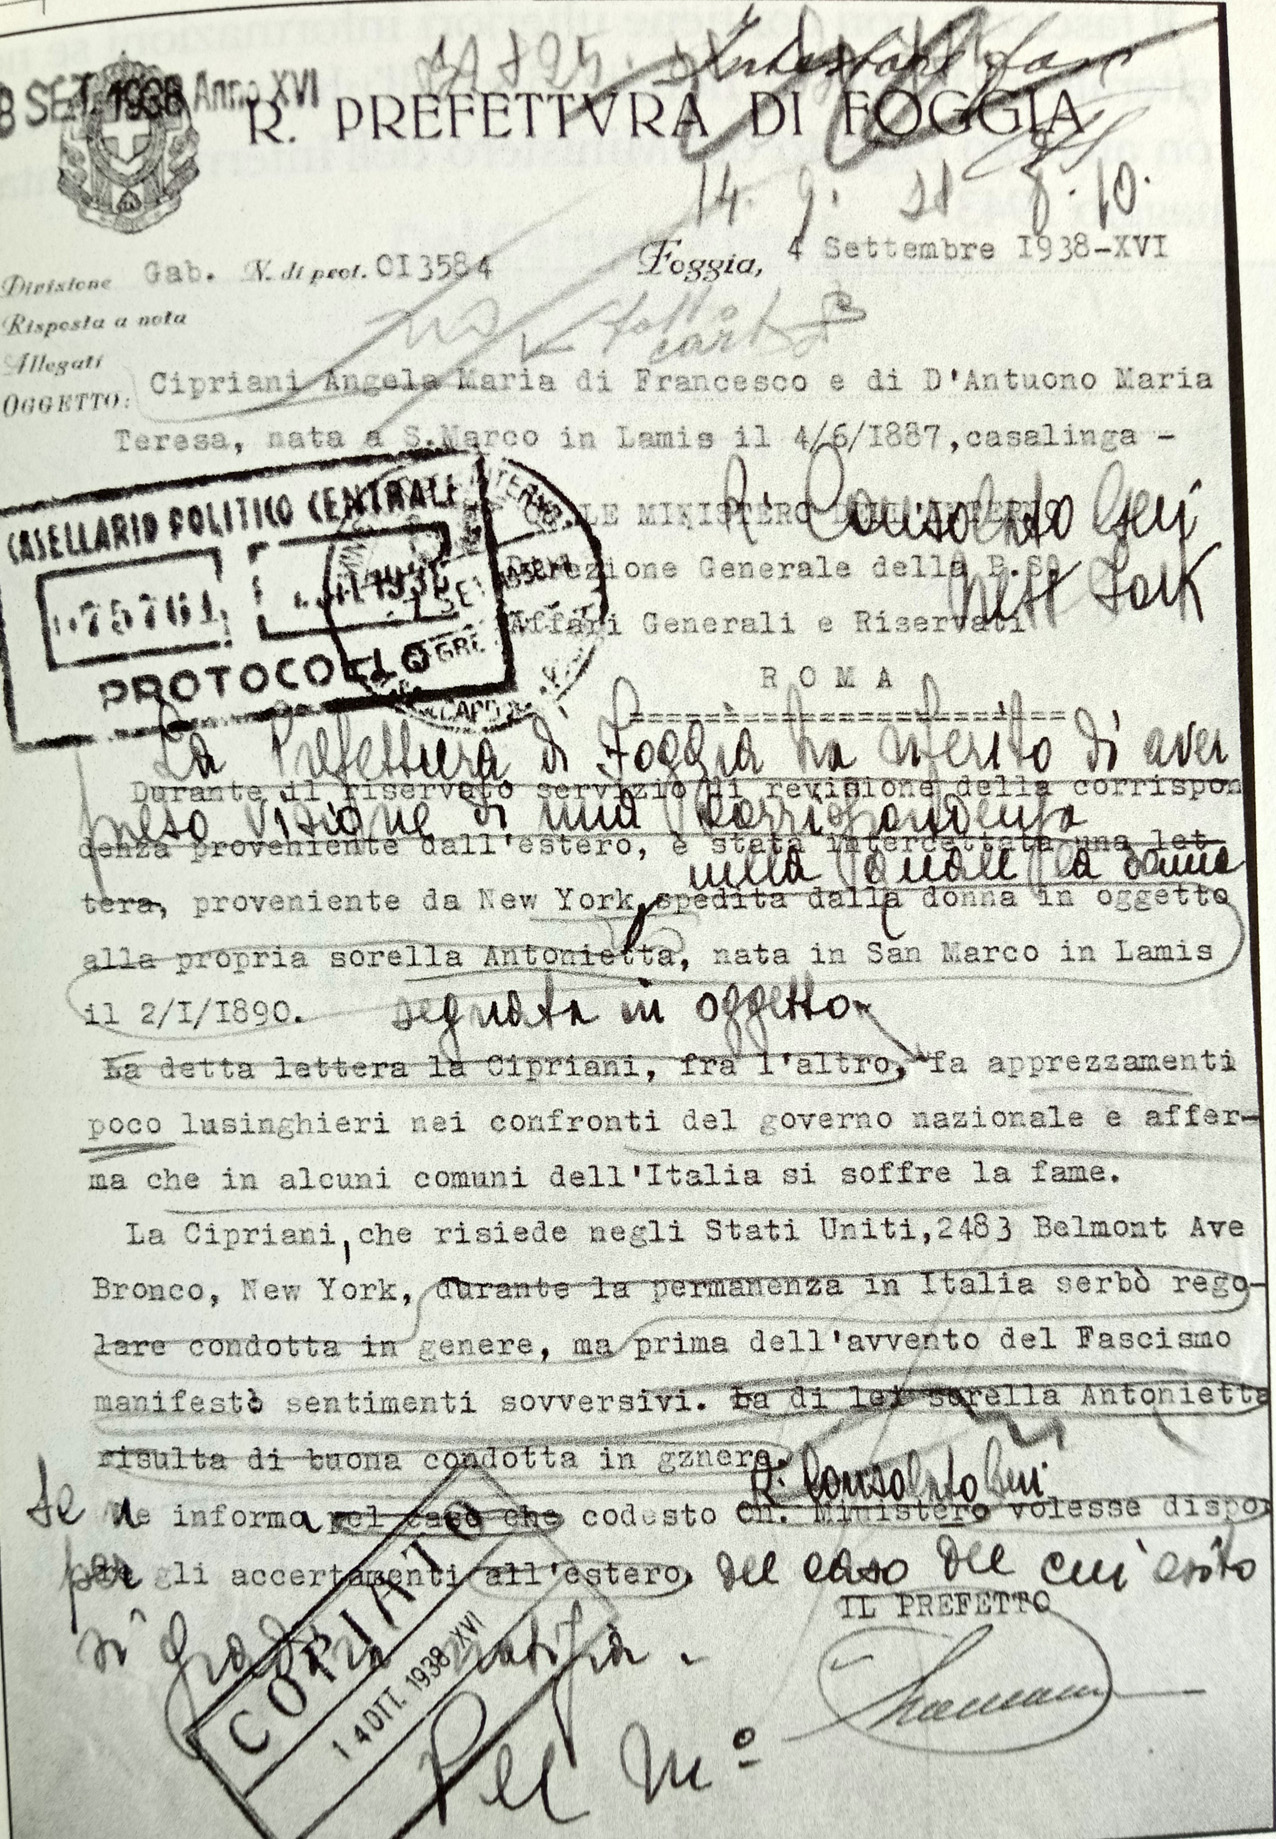 8 SET. 1938 Anno XVI
R. PREFETTVRA DI FOGGIA
14. 9. 8.10.
Foggia, 4 Settembre 1938-XVI
Divisione Gab. N. di prot. 013584
Risposta a nota
Allegati
OGGETTO: Cipriani Angela Maria di Francesco e di D'Antuono Maria
Teresa, nata a S.Marco in Lamis il 4/6/1887,casalinga -
R. Consolato Gen
New York
LE MINISTERO DELL'INTERNO
Direzione Generale della P.S.
Affari Generali e Riservati
ROMA
====================
CASELLARIO POLITICO CENTRALE
75761
PROTOCOLLO
La Prefettura di Foggia ha riferito di aver
Durante il riservato servizio di revisione della corrispon
preso visione di una corrispondenza
denza proveniente dall'estero, è stata intercettata una let-
nella quale la donna
tera, proveniente da New York, spedita dalla donna in oggetto
alla propria sorella Antonietta, nata in San Marco in Lamis
il 2/I/1890. segnata in oggetto
La detta lettera la Cipriani, fra l'altro, fa apprezzamenti
poco lusinghieri nei confronti del governo nazionale e affer-
ma che in alcuni comuni dell'Italia si soffre la fame.
La Cipriani, che risiede negli Stati Uniti,2483 Belmont Ave
Bronco, New York, durante la permanenza in Italia serbò rego-
lare condotta in genere, ma prima dell'avvento del Fascismo
manifestò sentimenti sovversivi. La di lei sorella Antonietta
risulta di buona condotta in gznere.
R. Consolato Gen.
Se ne informa pel caso che codesto On. Ministero volesse dispor
per gli accertamenti all'estero. del caso del cui esito
IL PREFETTO
si gradirà notizia.
COPIATO
14 OTT. 1938 XVI
Pel M.º